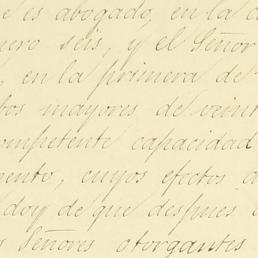 e es abogado, en la c
nero seis, y el Señor
, en la primera de
tos mayores de veint
ompetente capacidad
mento, cuyos efectos a
doy de que despues
s Señores otorgantes